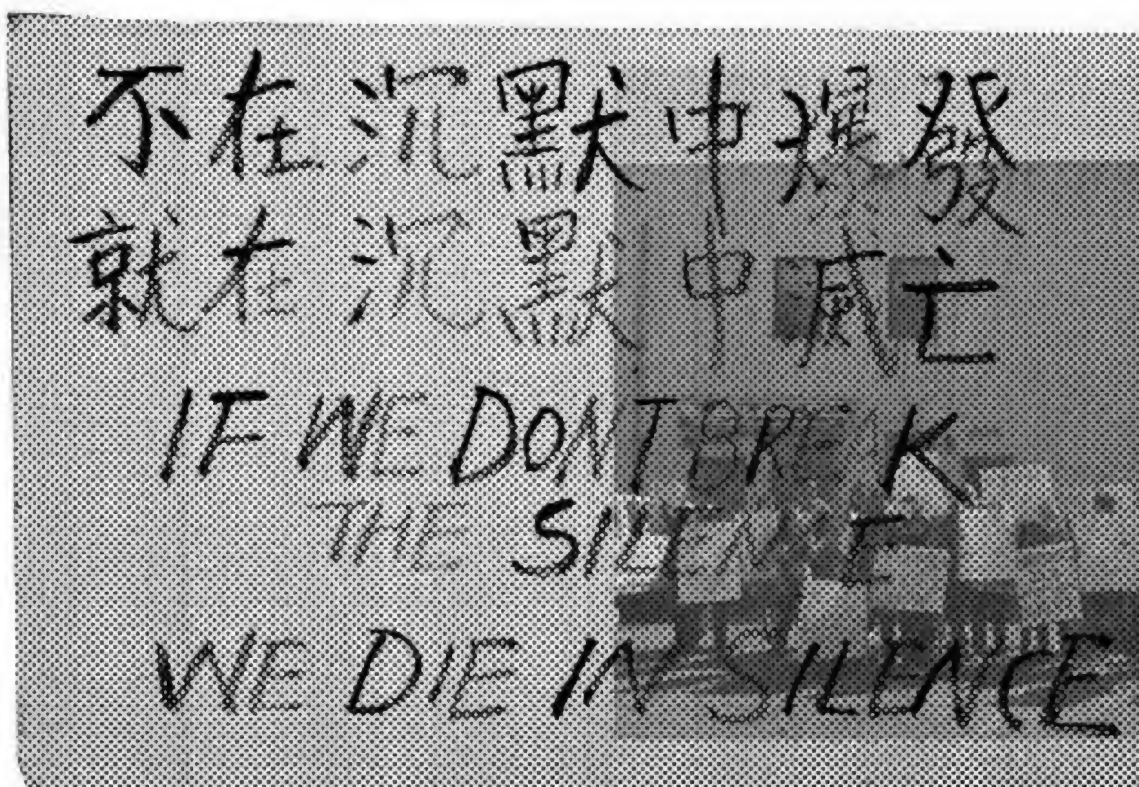 不在沉默中爆發
就在沉默中烕亡
IF WE DON'T BREAK
THE SILENCE
WE DIE IN SILENCE